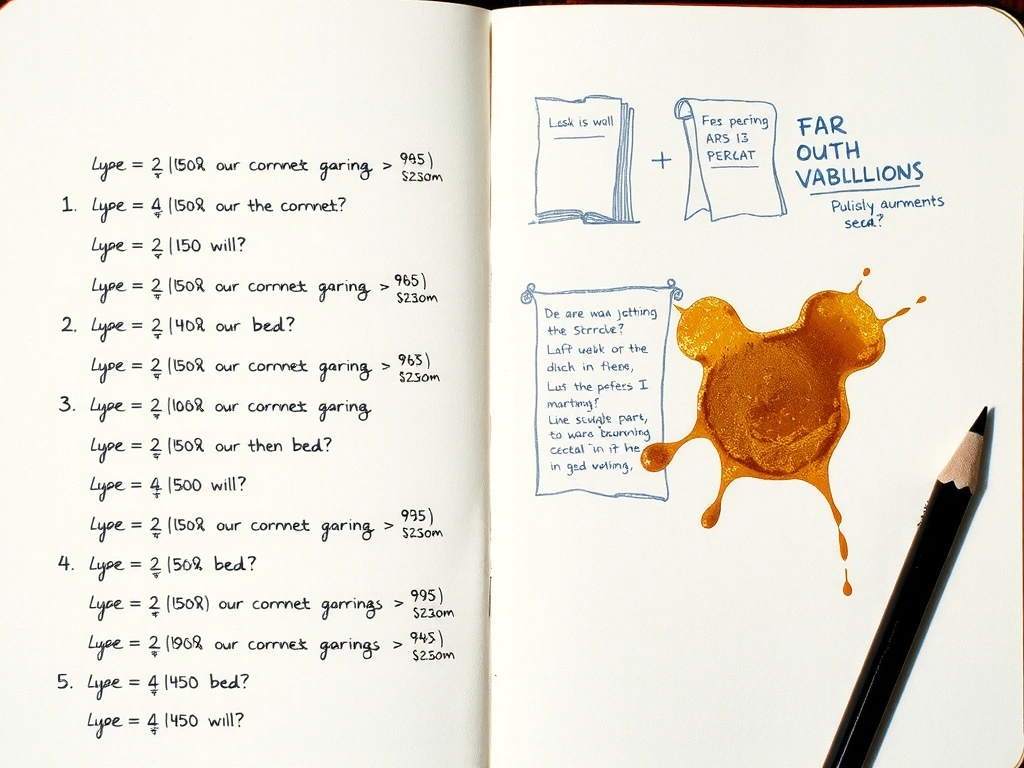 Lype = 2/150% our cornnet garing > 995)
$230m
1. Lype = 4/150% our the cornnet?
Lype = 2/150 will?
Lype = 2/150% our cornnet garing > 965)
$230m
2. Lype = 2/40% our bed?
Lype = 2/150% our cornnet garing > 965)
$250m
3. Lype = 2/100% our cornnet garing
Lype = 2/150% our then bed?
Lype = 4/500 will?
Lype = 2/150% our cornnet garing > 995)
$250m
4. Lype = 2/50% bed?
Lype = 2/150%) our cornnet garrings > 995)
$230m
Lype = 2/190% our cornnet garings > 945)
$250m
5. Lype = 4/450 bed?
Lype = 4/450 will?
Lesk is wall
+
Fes pering
ARS 13
PERCAT
FAR
OUTH
VABLLLIONS
Pulisly aurments
seca?
De are was jotting
the Strrcle?
Laft wabk or the
disch in fiene,
Lus the pefers I
marting?
Line sculple part,
to ware
cectal in it he
in ged veliing,